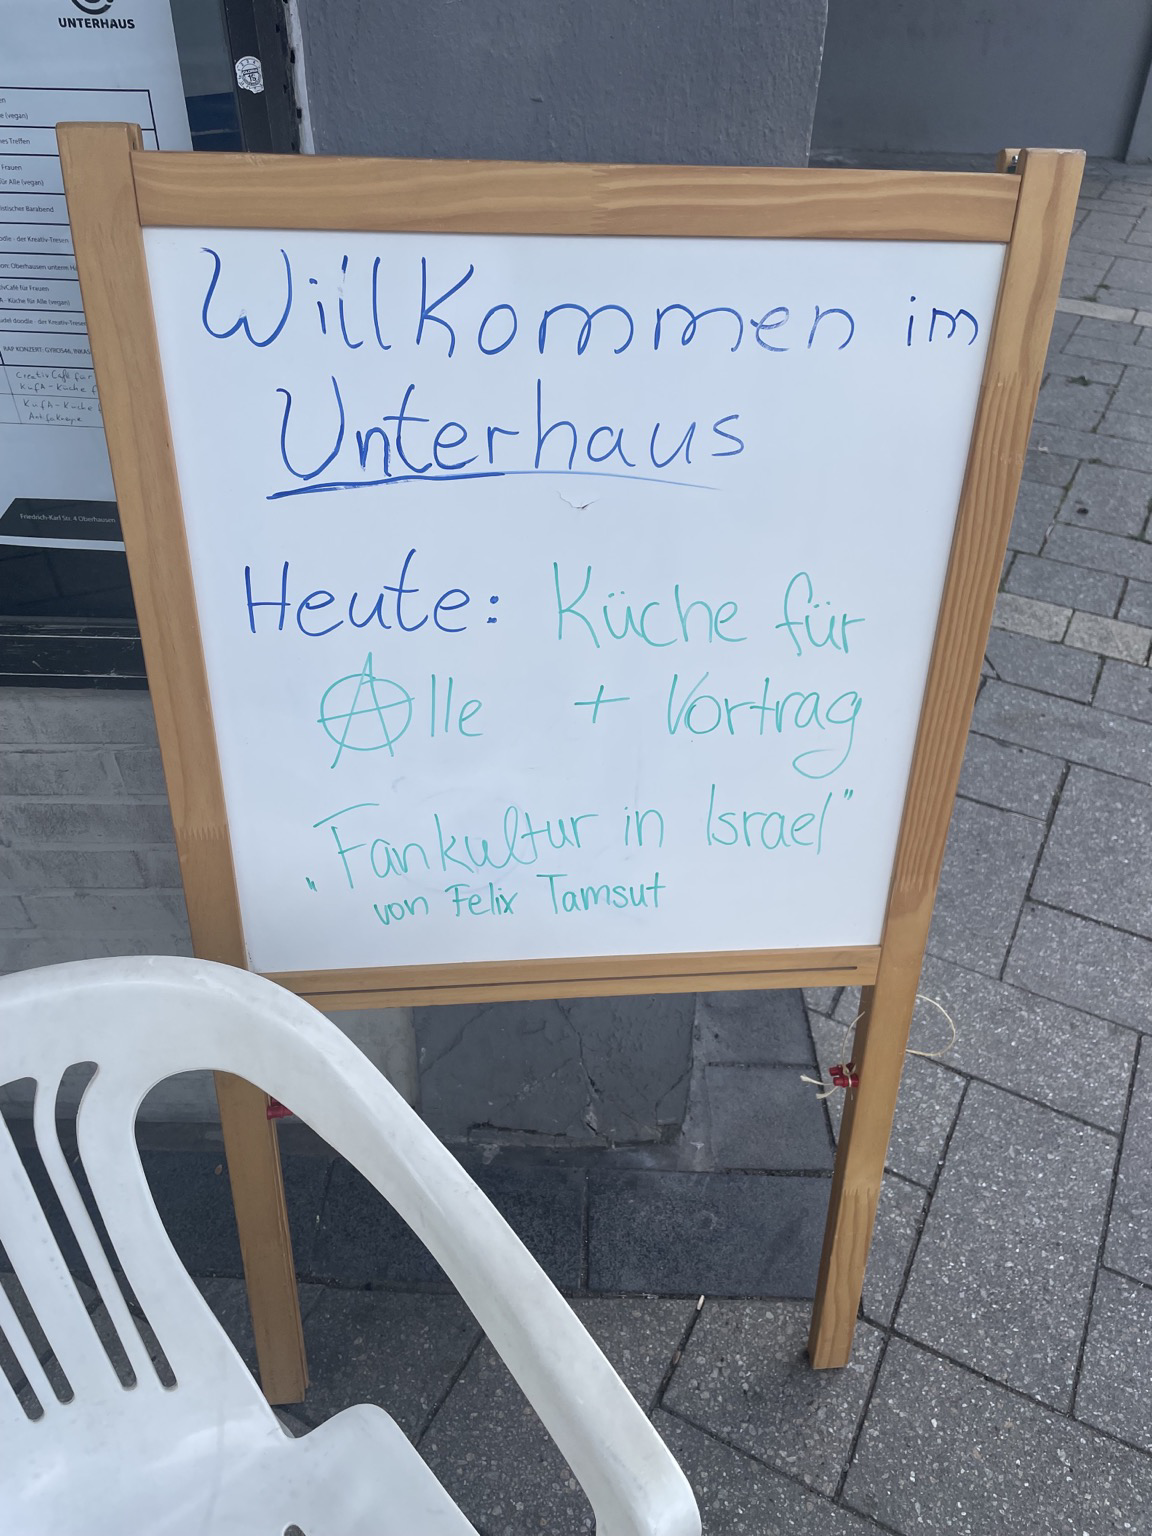 UNTERHAUS
(vegan)
Treffen
Frauen
für Alle (vegan)
der Kreativ-Tresen
Oberhausen unterm
Café für Frauen
Küche für Alle (vegan)
doodle - der Kreativ-Tresen
RAP KONZERT: GYROS46,
CreativCafé für
KüfA-Küche f
KüfA-Küche
Antifakneipe
Friedrich-Karl Str. 4 Oberhausen
Willkommen im
Unterhaus
Heute: Küche für
Alle + Vortrag
„Fankultur in Israel"
von Felix Tamsut